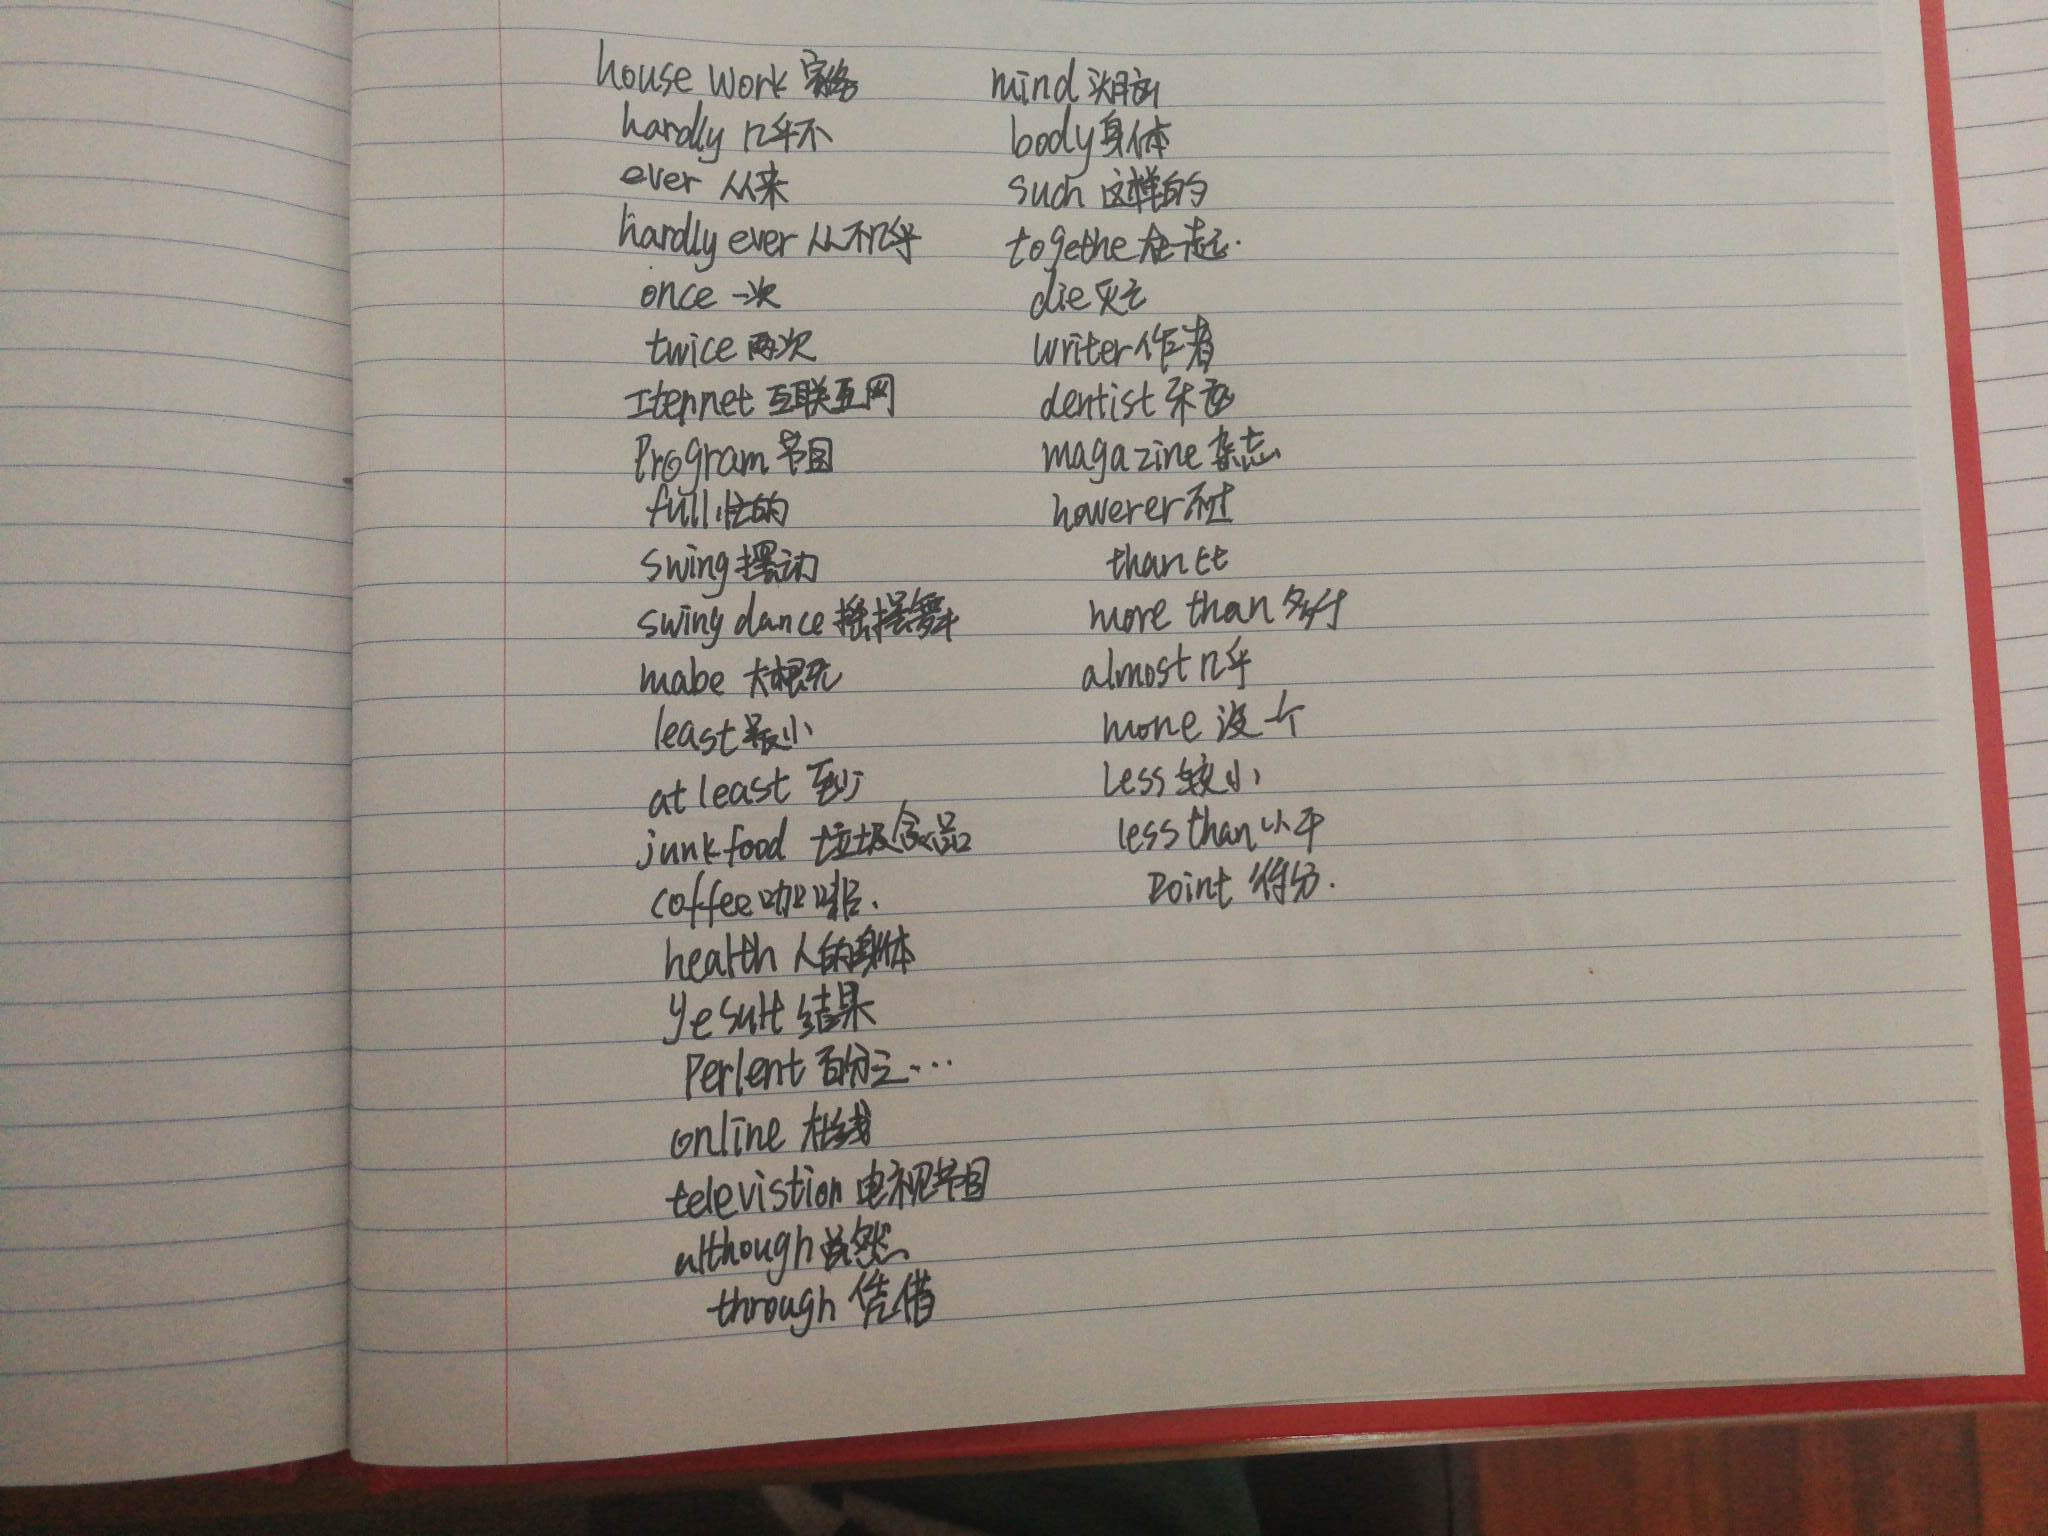 house work 家务
hardly 几乎不
ever 从来
hardly ever 从不几乎
once 一次
twice 两次
Iternet 互联互网
Program 节目
full 忙的
swing 摆动
swing dance 摇摆舞
mabe 大概
least 最小
at least 至少
junk food 垃圾食品
coffee 咖啡.
health 人的身体
yesult 结果
Perlent 百分之...
online 在线
televistion 电视节目
although 虽然
through 凭借
mind 头脑
body 身体
such 这样的
togethe 在一起.
die 死亡
writer 作者
dentist 牙医
magazine 杂志
howerer 不过
than 比
more than 多于
almost 几乎
mone 没一个
less 较小
less than 少于
Point 得分.